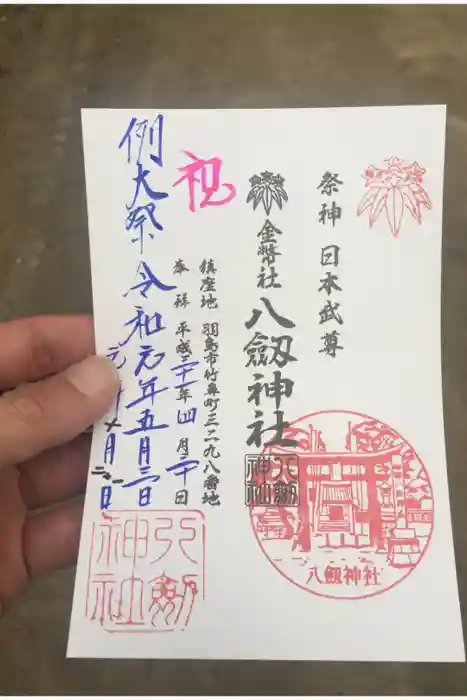 祭神 日本武尊
金幣社 八劔神社
八劔神社
八劔神社
鎮座地 羽島市竹鼻町三二九八番地
奉拝 平成三十一年四月三十日
祝
例大祭 令和元年五月三日
八劔神社